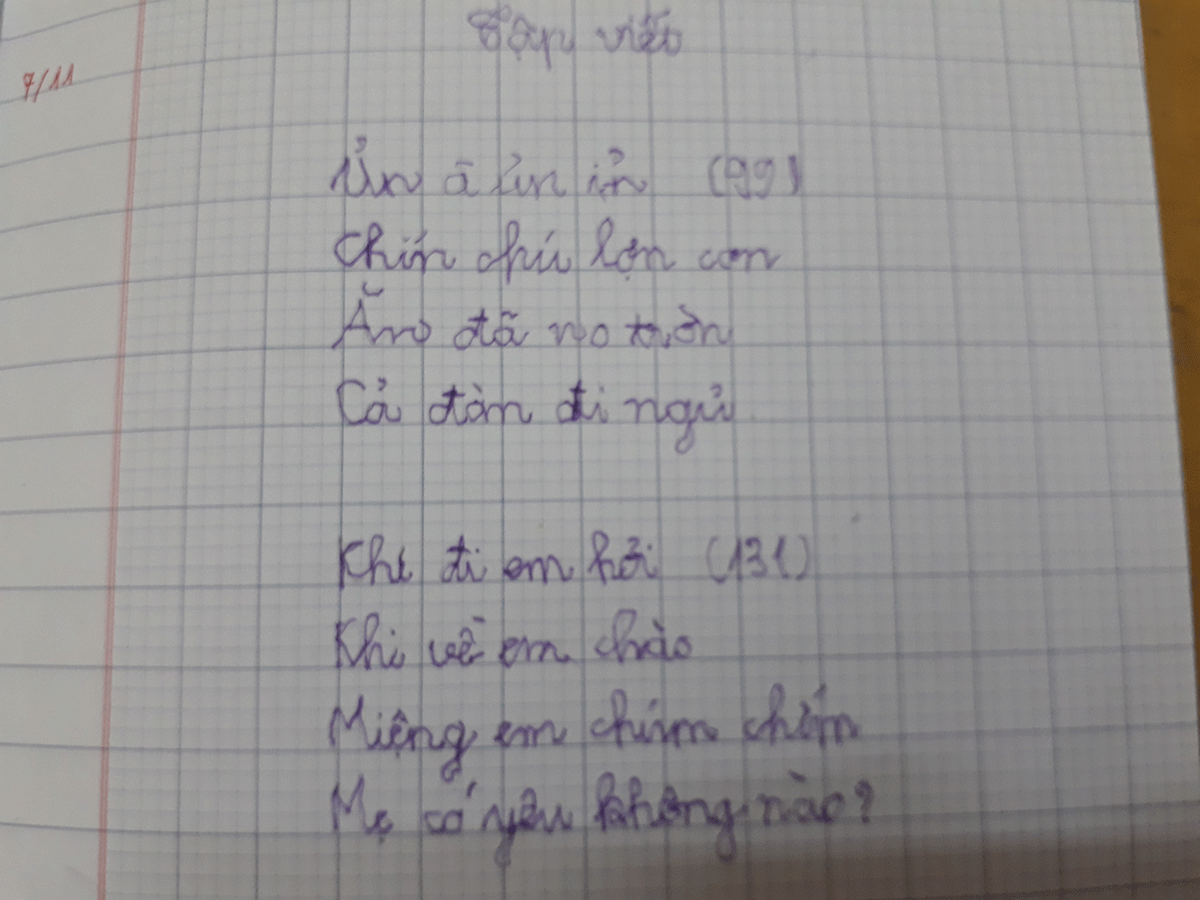 Tập viết
7/11
Ủn à ủn ỉn (99)
Chín chú lợn con
Ăn đã no tròn
Cả đàn đi ngủ
Khi đi em hỏi (131)
Khi về em chào
Miệng em chúm chím
Mẹ có yêu không nào?